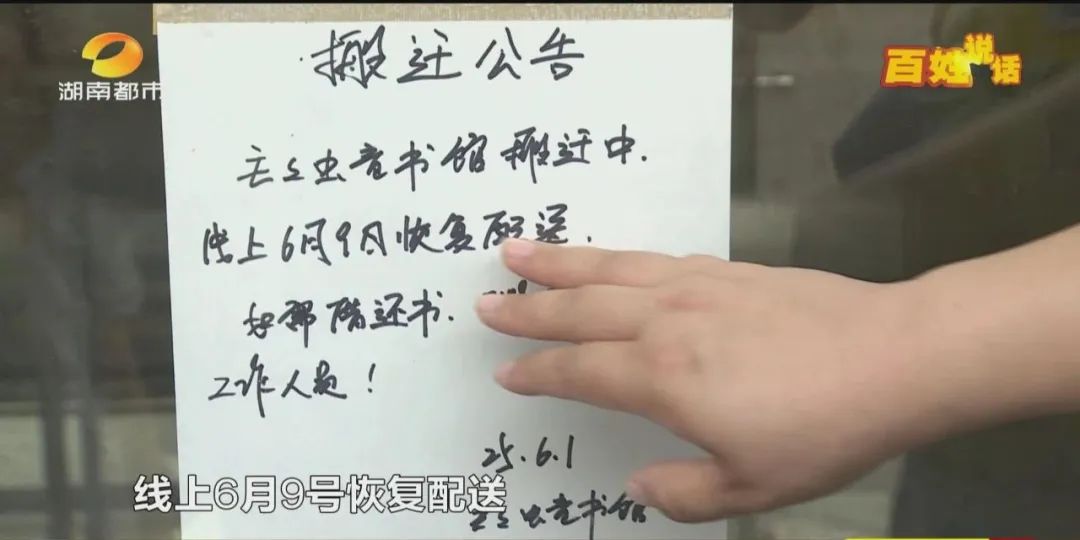 湖南都市
百姓说话
搬迁公告
虫童书馆搬迁中.
线上6月9日恢复配送.
还书.
工作人员!
25.6.1
线上6月9号恢复配送
虫童书馆